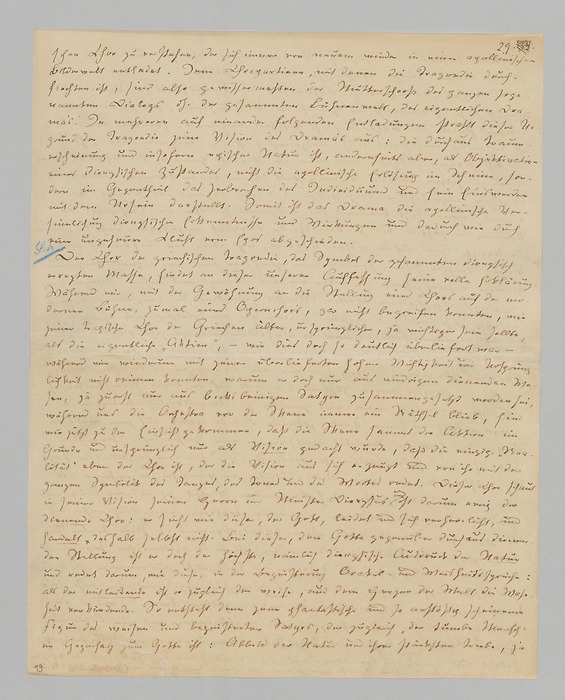 29.
schen Chor zu verstehen, der sich immer von neuem wieder in einer apollinischen
Bilderwelt entladet. Jene Chorpartieen, mit denen die Tragoedie durch-
flochten ist, sind also gewissermaßen der Mutterschooß des ganzen soge-
nannten Dialogs dh. der gesammten Bühnenwelt, des eigentlichen Dra-
mas. In mehreren auf einander folgenden Entladungen strahlt dieser Ur-
grund der Tragoedie jene Vision des Dramas aus: die durchaus Traum-
erscheinung und insofern epischer Natur ist, andrerseits aber, als Objektivation
eines dionysischen Zustandes, nicht die apollinische Erlösung im Scheine, son-
dern im Gegentheil das Zerbrechen des Individuums und sein Einswerden
mit dem Ursein darstellt. Somit ist das Drama die apollinische Ver-
sinnlichung dionysischer Erkenntnisse und Wirkungen und dadurch wie durch
eine ungeheure Kluft vom Epos abgeschieden.
Der Chor der griechischen Tragoedie, das Symbol der gesammten dionysisch
erregten Masse, findet an dieser unserer Auffassung seine volle Erklärung.
Während wir, mit der Gewöhnung an die Stellung eines Chors auf der mo-
dernen Bühne, zumal eines Opernchors, gar nicht begreifen konnten, wie
jener tragische Chor der Griechen älter, ursprünglicher, ja wichtiger sein sollte,
als die eigentliche „Aktion“, – wie dies doch so deutlich überliefert war –
während wir wiederum mit jener überlieferten hohen Wichtigkeit und Ursprüng-
lichkeit nicht reimen konnten, warum er doch nur aus niedrigen dienenden We-
sen, ja zuerst nur aus bocksbeinigen Satyrn zusammengesetzt worden sei,
während uns die Orchestra vor der Skene immer ein Räthsel blieb, sind
wir jetzt zu der Einsicht gekommen, daß die Skene sammt der Aktion im
Grunde und ursprünglich nur als Vision gedacht wurde, daß die einzige „Rea-
lität“ eben der Chor ist, der die Vision aus sich erzeugt und von ihr mit der
ganzen Symbolik des Tanzes, des Tones und des Wortes redet. Dieser Chor schaut
in seiner Vision seinen Herrn und Meister Dionysus und ist darum ewig der
dienende Chor: er sieht wie dieser, der Gott, leidet und sich verherrlicht, und
handelt deshalb selbst nicht. Bei dieser, dem Gotte gegenüber durchaus dienen-
den Stellung ist er doch der höchste, nämlich dionysische Ausdruck der Natur
und redet darum, wie diese, in der Begeisterung Orakel- und Weisheitssprüche:
als der mitleidende ist er zugleich der weise, aus dem Herzen der Welt die Wahr-
heit verkündende. So entsteht denn jene phantastische und so anstößig scheinende
Figur des weisen und begeisterten Satyrs, der zugleich „der tumbe Mensch“
im Gegensatz zum Gotte ist: Abbild der Natur und ihrer stärksten Triebe, ja
19